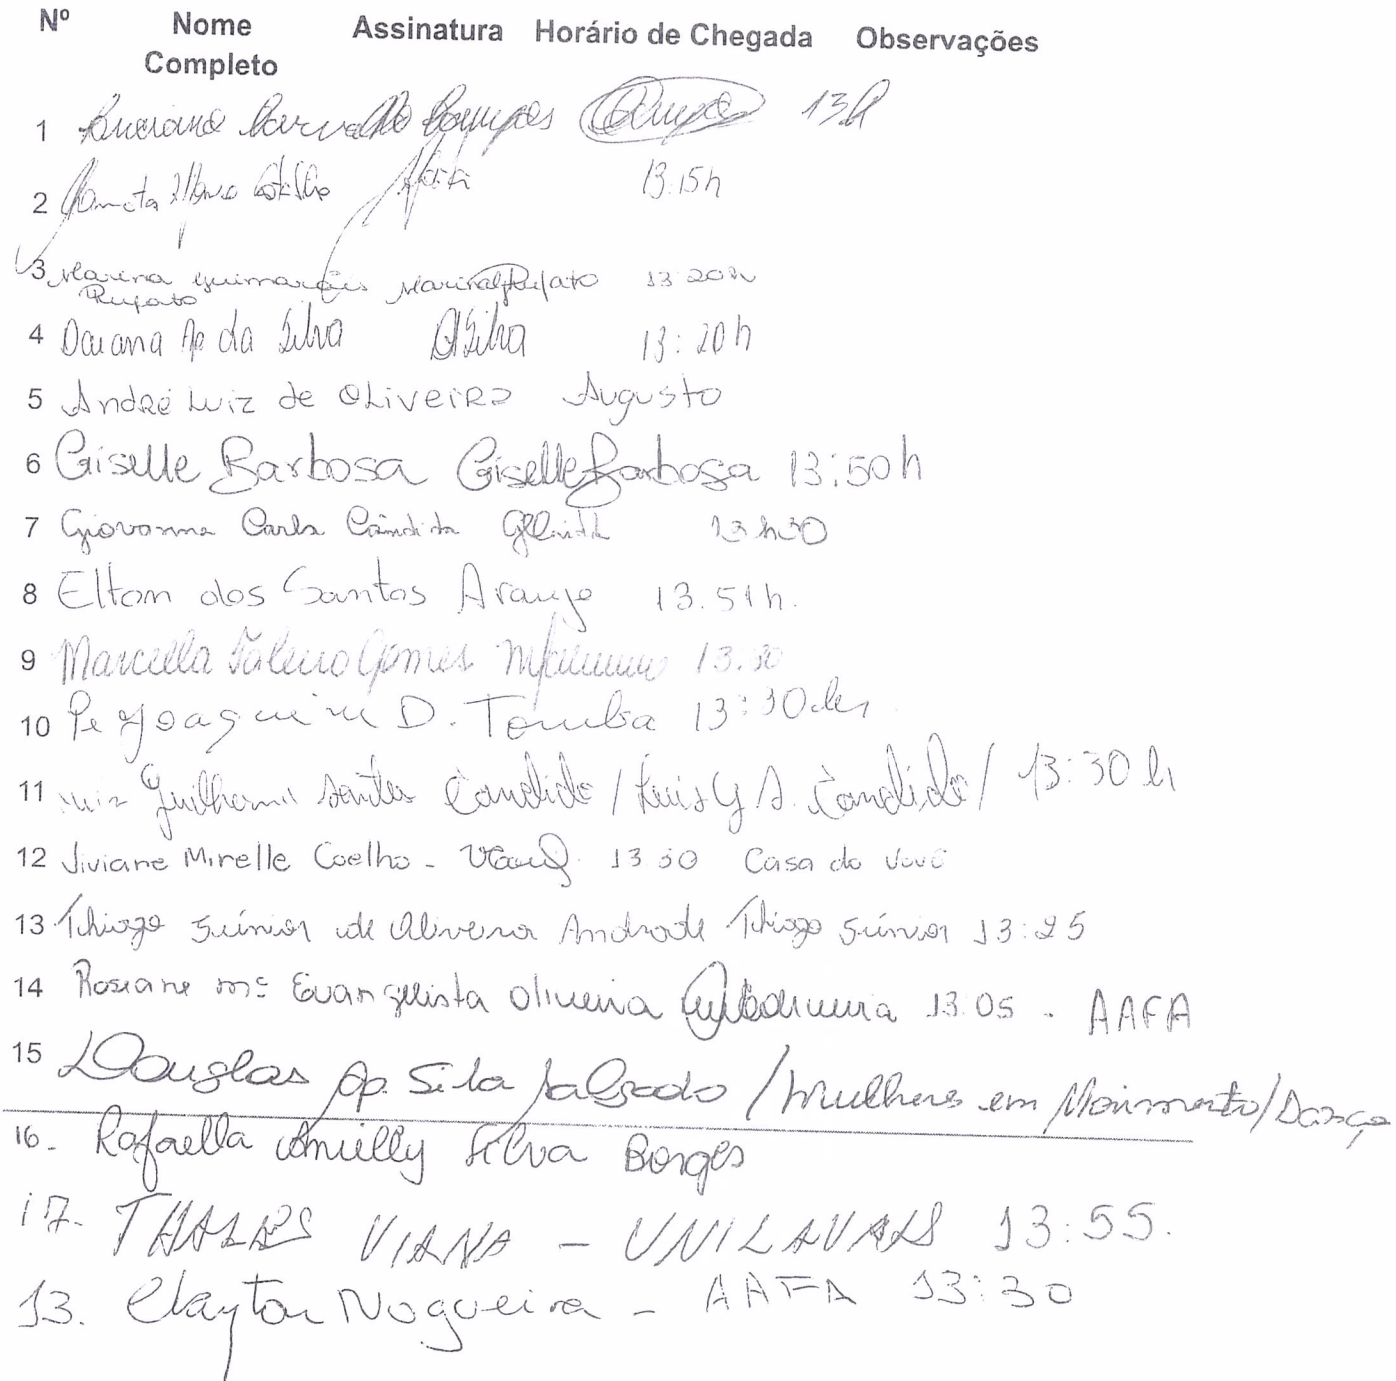 Nº Nome Completo Assinatura Horário de Chegada Observações
1 Luciano Carvalho Campos Campos 13h
2 13:15h
3 Marina Guimarães Rufato Marina G Rufato 13:20h
4 Daiana Ap da Silva DASilva 13:20h
5 André Luiz de Oliveira Augusto
6 Giselle Barbosa Giselle Barbosa 13:50h
7 Giovanna Carla Cândida 13h30
8 Elton dos Santos Araujo 13.51h.
9 Marcella Gomes 13:30
10 Pe Joaquim D. Tomba 13:30hs
11 Luis Guilherme Santos Candido / Luis G S. Candido / 13:30 h
12 Viviane Mirelle Coelho - 13 50 Casa do Vovô
13 Thiago Júnior de Oliveira Andrade Thiago Júnior 13:25
14 Roseane Mª Evangelista Oliveira 13:05 - AAFA
15 Douglas Ap. Silva Salgado / Mulheres em Movimento / Dança
16- Rafaella Emielly Silva Borges
17. THALES VIANA - UNILAVRAS 13:55.
13. Clayton Nogueira - AAFA 13:30